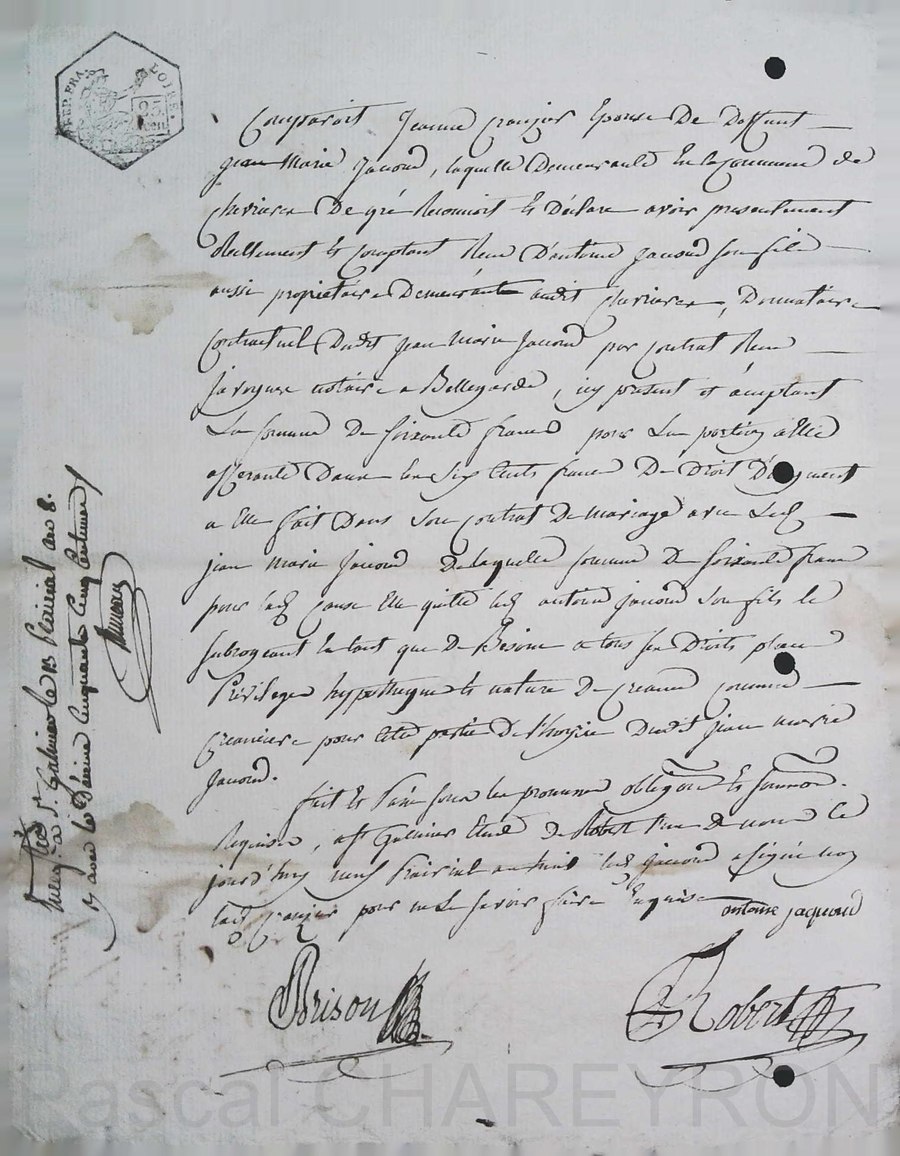 REP. FRA.
LOIRE
25
cen
Comparoit Jeanne Crozier Epouse De Deffunt
jean Marie Jacoud, laquelle Demeurante En la Commune de
chevrieres De gré Reconnoit Et Déclare avoir presentement
Reellement Et comptant Receu D'antoine Jacoud son fils
aussi proprietaire Demeurant audit chevrieres, Donnataire
Contractuel Dudit jean Marie Jacoud par contrat Receu
notaire a Bellegarde, icy présent et acceptant
La somme De soixante francs pour La portion a Elle
afferante Dans les Six Cents francs De Droit D'augment
a Elle fait Dans Son contrat De mariage avec Led.
jean Marie Jacoud De laquelle somme De Soixante francs
pour lad. cause Elle quitte led. antoine jacoud Son fils le
subrogeant En tant que De Besoin a tous ses Droits place
Privilege hyppotheque Et nature De creance comme
creanciere pour cette partie De l'hoyrie Dudit jean marie
Jacoud.
fait Et Passé sous les promesses obligons Et
Requises, a St Galmier Etude De Robert l'un De nous Ce
jourd'huy neuf Prairial an huit led. jacoud a signé non
lad. Crozier pour ne le savoir faire Enquise
antoine jacoud
Brison
Robert
Enreg. a St. Galmier le 13 Prairial an 8.
Reçu cinquante cinq Centimes
Pascal CHAREYRON